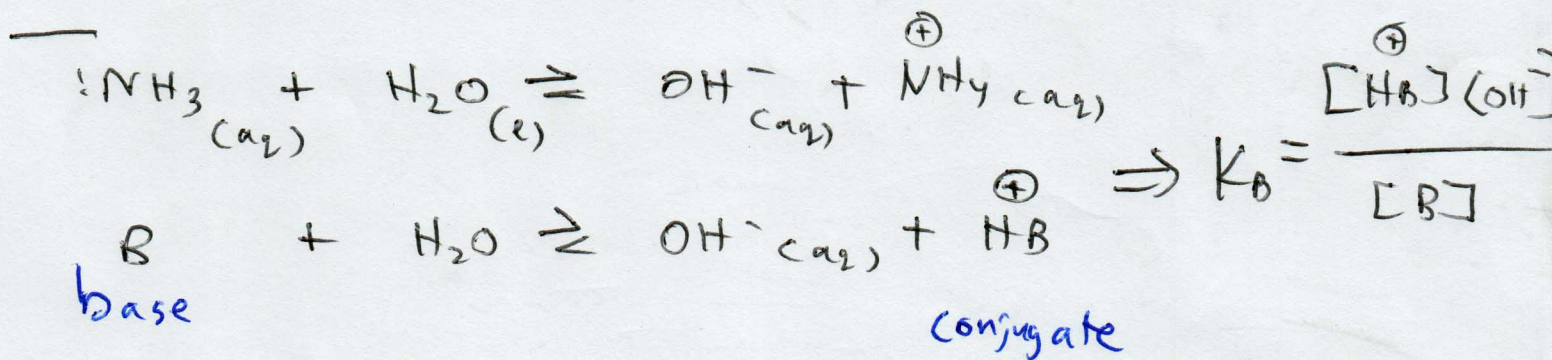 :NH₃(aq) + H₂O(l) ⇌ OH⁻(aq) + NH₄⊕(aq)
B + H₂O ⇌ OH⁻(aq) + HB⊕ ⇒ K_B = [HB⊕](OH⁻] / [B]
base conjugate